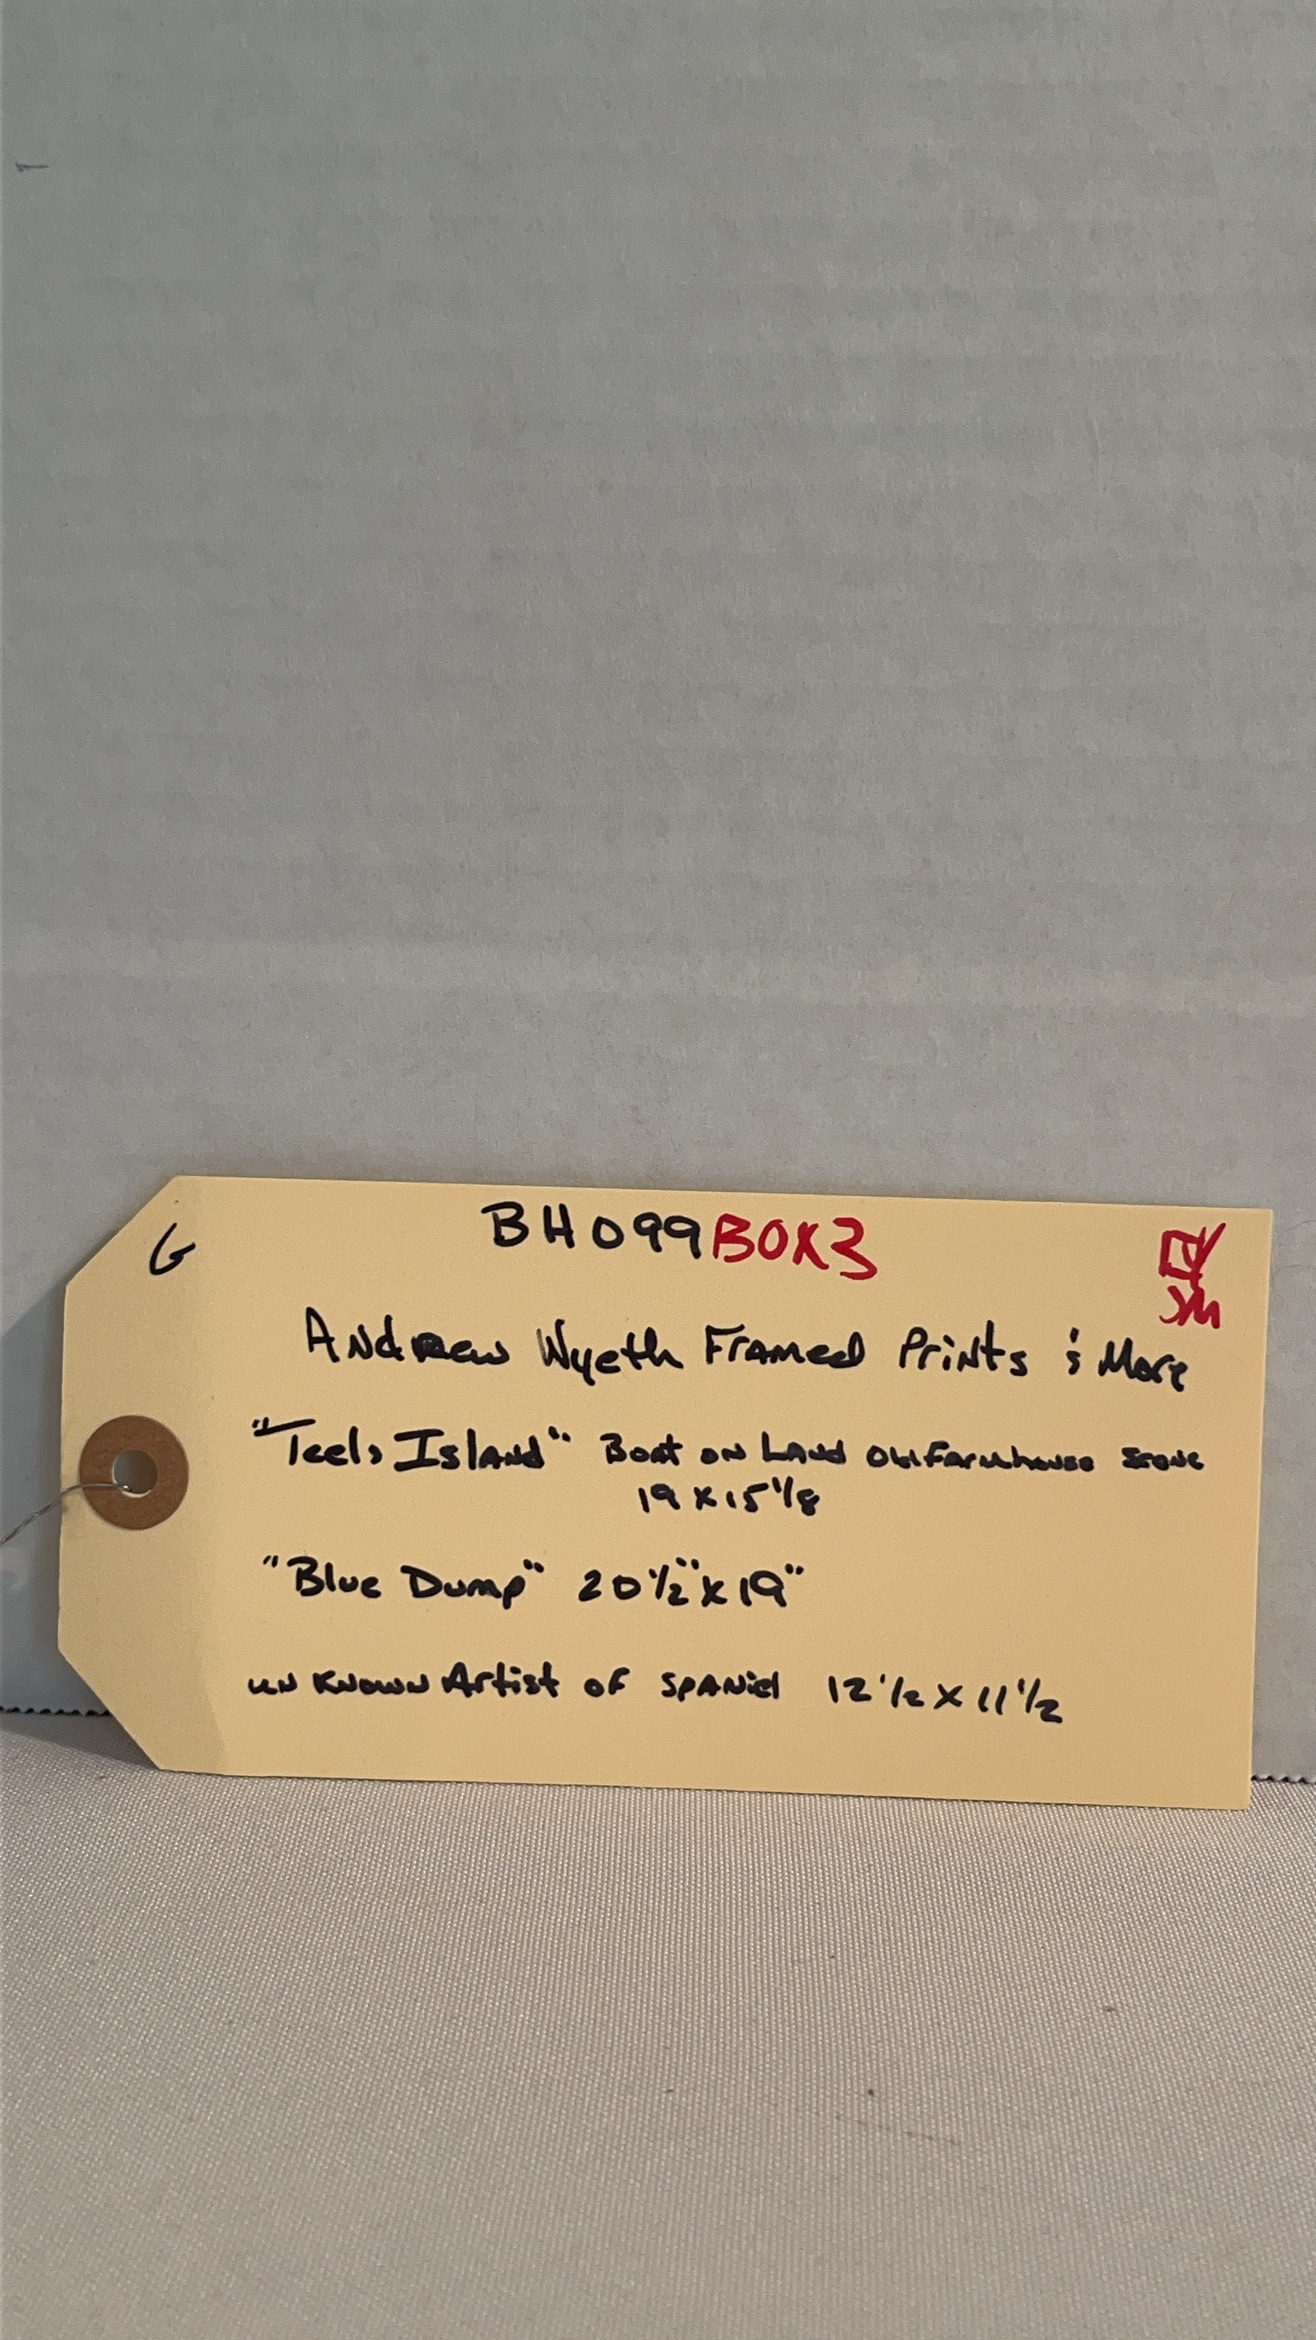 G
BH099 BOX3
JM
Andrew Wyeth Framed Prints & More
"Teels Island" Boat on Land Old Farmhouse Scene
19 x 15 1/8
"Blue Dump" 20 1/2" x 19"
unknown Artist of Spaniel 12 1/2 x 11 1/2